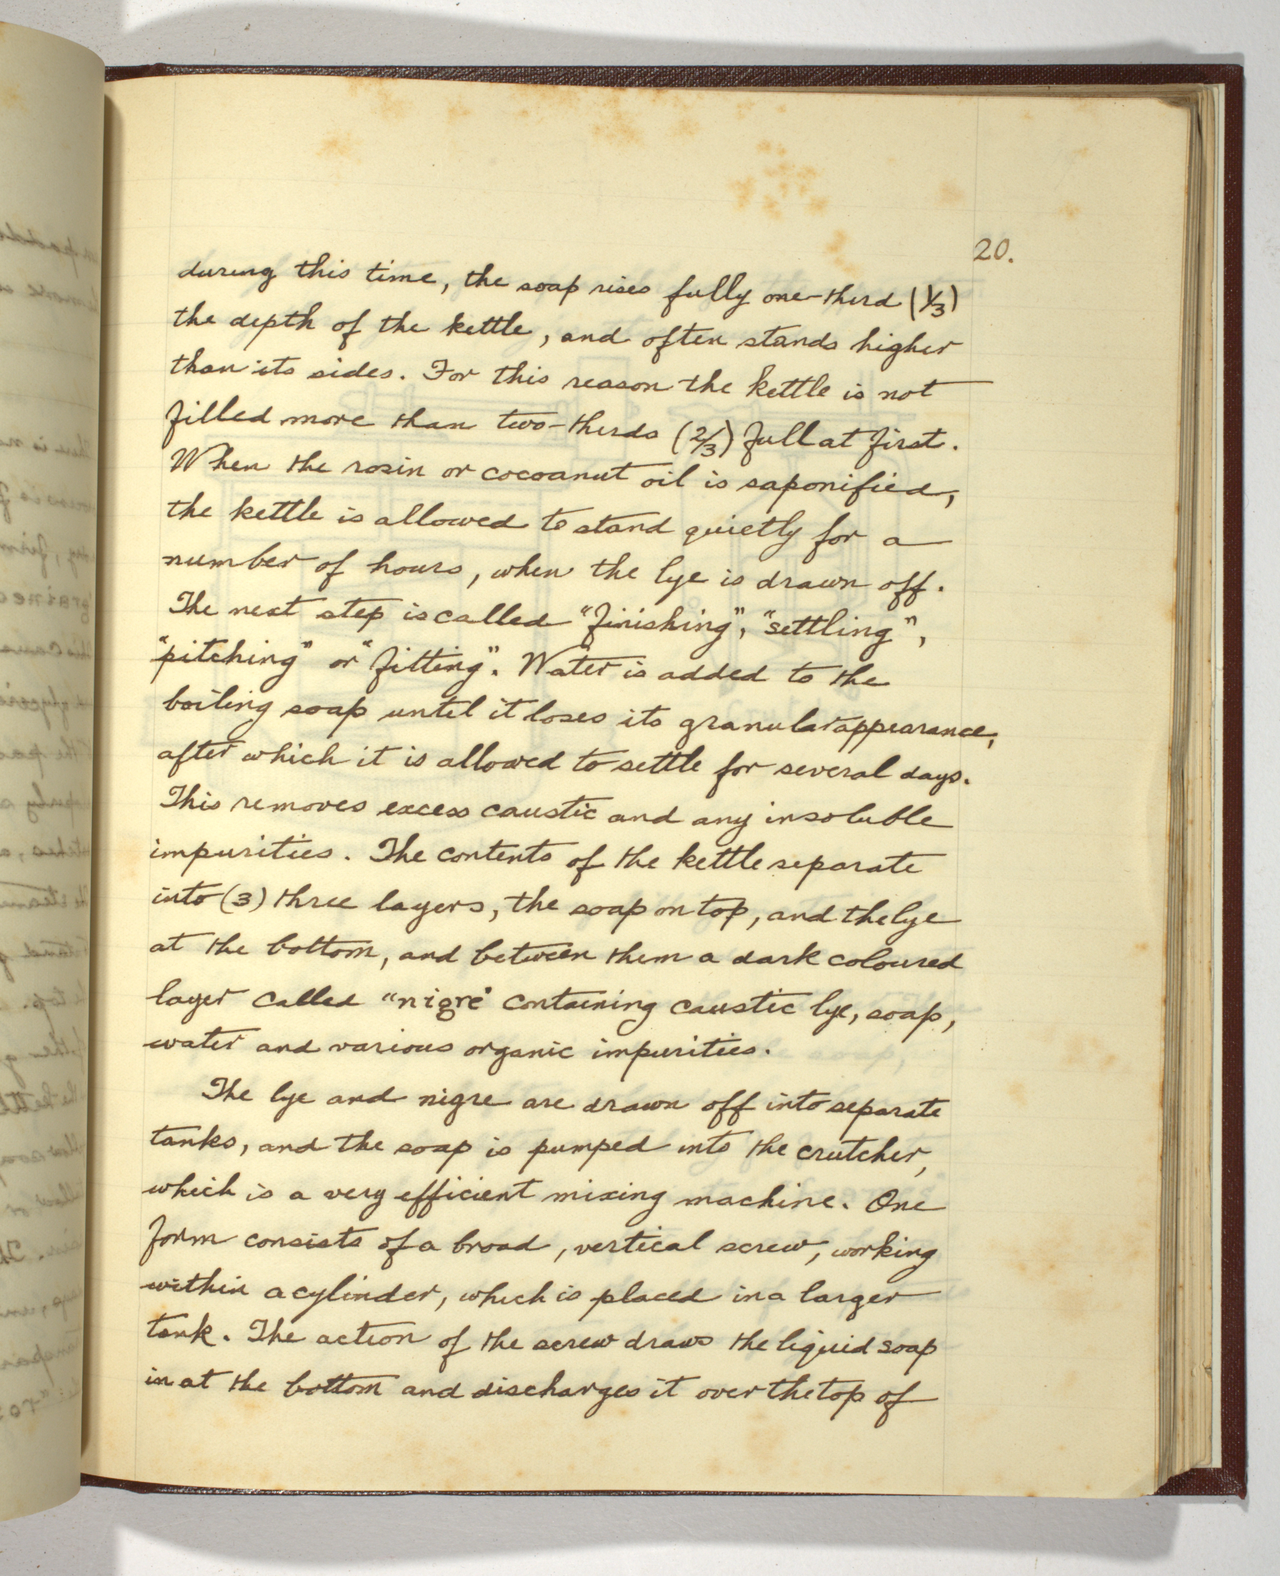 20.
during this time, the soap rises fully one-third (1/3)
the depth of the kettle, and often stands higher
than its sides. For this reason the kettle is not
filled more than two-thirds (2/3) full at first.
When the rosin or cocoanut oil is saponified,
the kettle is allowed to stand quietly for a
number of hours, when the lye is drawn off.
The next step is called "finishing", "settling",
"pitching" or "fitting". Water is added to the
boiling soap until it loses its granular appearance,
after which it is allowed to settle for several days.
This removes excess caustic and any insoluble
impurities. The contents of the kettle separate
into (3) three layers, the soap on top, and the lye
at the bottom, and between them a dark coloured
layer called "nigre" containing caustic lye, soap,
water and various organic impurities.
The lye and nigre are drawn off into separate
tanks, and the soap is pumped into the crutcher,
which is a very efficient mixing machine. One
form consists of a broad, vertical screw, working
within a cylinder, which is placed in a larger
tank. The action of the screw draws the liquid soap
in at the bottom and discharges it over the top of